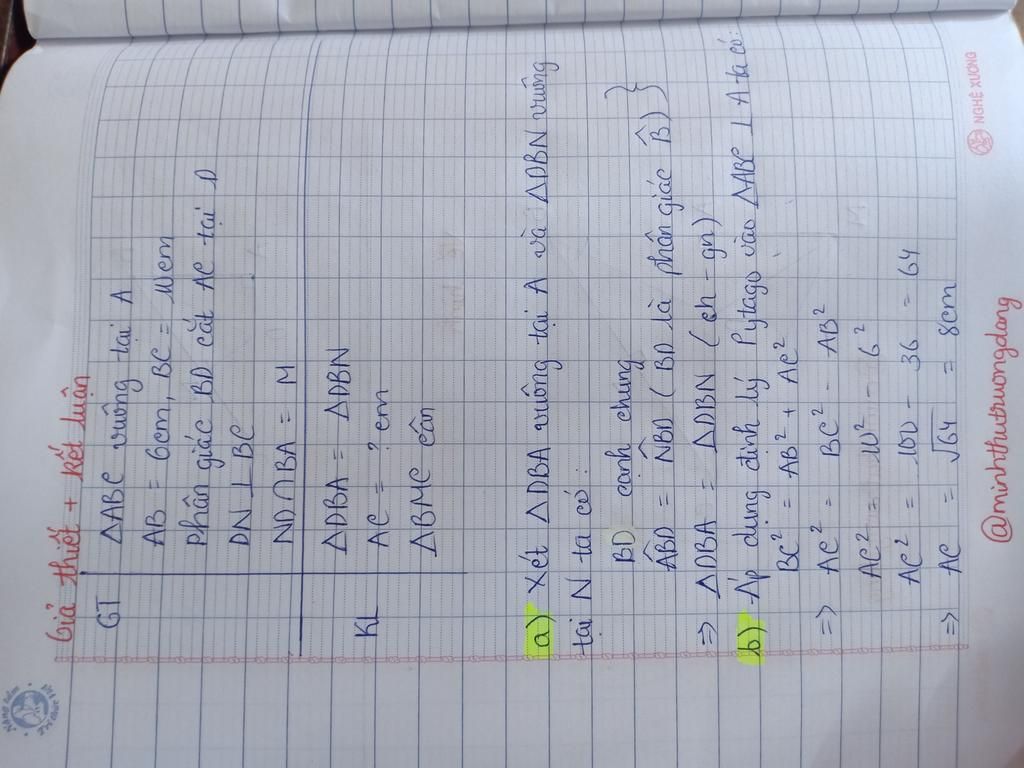 Giả thiết + kết luận
GT
ΔABC vuông tại A
AB = 6cm, BC = 10cm
phân giác BD cắt AC tại D
DN ⊥ BC
ND∩BA = M
KL
ΔDBA = ΔDBN
AC = ? cm
ΔBMC cân
a) Xét ΔDBA vuông tại A và ΔDBN vuông
tại N ta có:
BD cạnh chung
ÂBD = N̂BD (BD là phân giác B̂)
=> ΔDBA = ΔDBN (ch - gn)
b) Áp dụng định lý Pytago vào ΔABC ⊥ A ta có:
BC² = AB² + AC²
=> AC² = BC² - AB²
AC² = 10² - 6²
AC² = 100 - 36 = 64
=> AC = √64 = 8cm
NGHỆ XƯƠNG
@minhthutruongdang